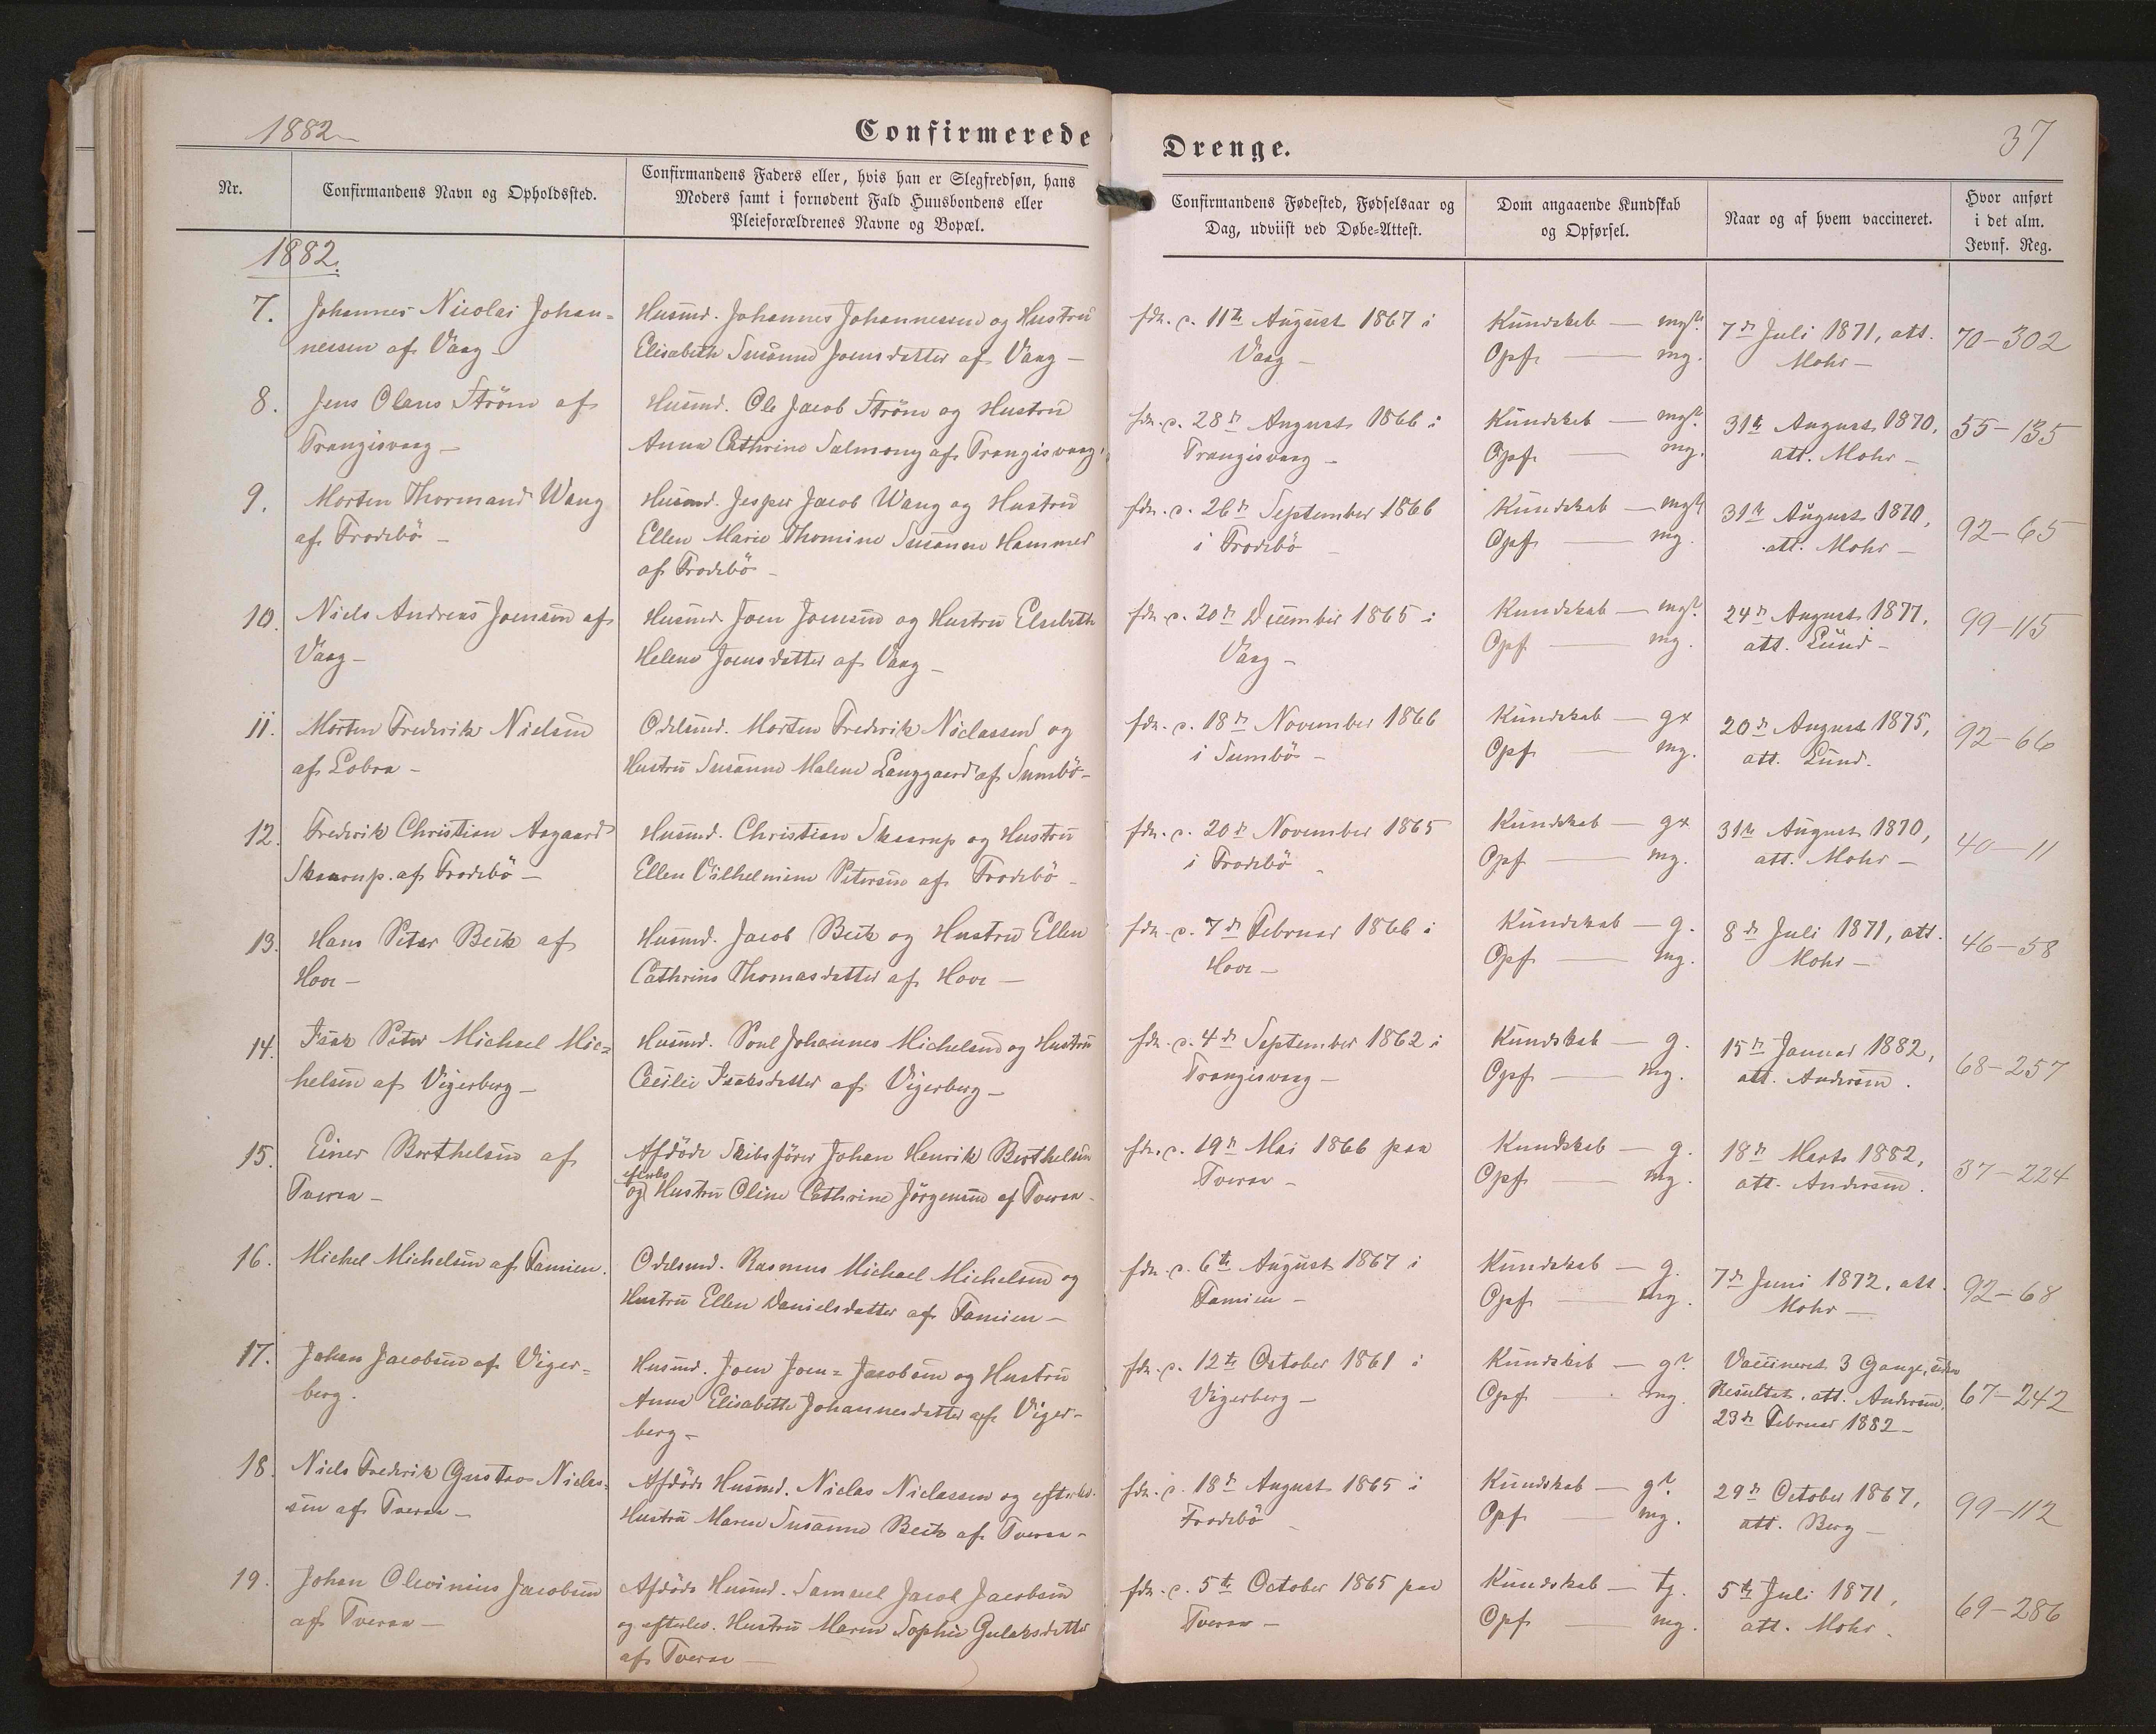 1882
Confirmerede
Drenge.
37
Nr.
Confirmandens Navn og Opholdssted.
Confirmandens Faders eller, hvis han er Slegfredsøn, hans
Moders samt i fornødent Fald Huusbondens eller
Pleieforældrenes Navne og Bopæl.
Confirmandens Fødested, Fødselsaar og
Dag, udviist ved Døbe-Attest.
Dom angaaende Kundskab
og Opførsel.
Naar og af hvem vaccineret.
Hvor anført
i det alm.
Jevnf. Reg.
1882.
7.
Johannes Nicolai Johan=
nessen af Vaag –
Husmd. Johannes Johannessen og Hustru
Elisabeth Susanne Joensdatter af Vaag –
fdn. d. 11te August 1867 i
Vaag –
Kundskab — mg?
Opf. — mg.
7de Juli 1871, att.
Mohr –
70–302
8.
Jens Olaus Ström af
Trangisvaag –
Husmd. Ole Jacob Ström og Hustru
Anna Cathrine Salmony af Trangisvaag.
fdn. d. 28de August 1866 i
Trangisvaag –
Kundskab — mg?
Opf. — mg.
31te August 1870,
att. Mohr –
55–135
9.
Morten Thormand Wang
af Frodebö –
Husmd. Jesper Jacob Wang og Hustru
Ellen Marie Thomine Susanne Hammer
af Frodebö –
fdn. d. 26de September 1866
i Frodebö –
Kundskab — mg?
Opf. — mg.
31te August 1870,
att. Mohr –
92–65
10.
Niels Andreas Joensen af
Vaag –
Husmd. Joen Joensen og Hustru Elsebeth
Helene Joensdatter af Vaag –
fdn. d. 20de December 1865 i
Vaag –
Kundskab — mg?
Opf. — mg.
24de August 1877,
att. Lund –
99–115
11.
Morten Frederik Nielsen
af Lobra –
Odelsmd. Morten Frederik Niclassen og
Hustru Susanne Malene Langgaard af Sumbö –
fdn. d. 18de November 1866
i Sumbö –
Kundskab — g+
Opf. — mg.
20de August 1875,
att. Lund.
92–66
12.
Frederik Christian Aagaard
Skaarup af Frodebö –
Husmd. Christian Skaarup og Hustru
Ellen Vilhelmine Petersen af Frodebö –
fdn. d. 20de November 1865
i Frodebö –
Kundskab — g+
Opf. — mg.
31te August 1870,
att. Mohr –
40–11
13.
Hans Peter Beck af
Hove –
Husmd. Jacob Beck og Hustru Ellen
Cathrine Thomasdatter af Hove –
fdn. d. 7de Februar 1866 i
Hove –
Kundskab — g.
Opf. — mg.
8de Juli 1871, att.
Mohr –
46–58
14.
Isak Peter Michael Mic=
helsen af Vigerberg –
Husmd. Poul Johannes Michelsen og Hustru
Cecilie Isaksdatter af Vigerberg –
fdn. d. 4de September 1862 i
Trangisvaag –
Kundskab — g.
Opf. — mg.
15de Januar 1882,
att. Andersen.
68–257
15.
Einer Berthelsen af
Tveraa –
Afdöde Skibsförer Johan Henrik Berthelsen
efterlev.
og Hustru Oline Cathrine Jörgensen af Tveraa –
fdn. d. 19de Mai 1866 paa
Tveraa –
Kundskab — g.
Opf. — mg.
18de Marts 1882,
att. Andersen.
37–224
16.
Michel Michelsen af Famien.
Odelsmd. Rasmus Michael Michelsen og
Hustru Ellen Danielsdatter af Famien –
fdn. d. 6te August 1867 i
Famien –
Kundskab — g.
Opf. — mg.
7de Juni 1872, att.
Mohr –
92–68
17.
Johan Jacobsen af Viger=
berg.
Husmd. Joen Joen=Jacobsen og Hustru
Anna Elisabeth Johannesdatter af Viger-
berg –
fdn. d. 12te October 1861 i
Vigerberg –
Kundskab — g?
Opf. — mg.
Vaccineret 3 Gange, uden
Resultat. att. Andersen.
23de Februar 1882 –
67–242
18.
Niels Frederik Gustav Niclas=
sen af Tveraa –
Afdöde Husmd. Niclas Niclassen og efterlev.
Hustru Maren Susanne Beck af Tveraa –
fdn. d. 18de August 1865 i
Frodebö –
Kundskab — g?
Opf. — mg.
29de October 1867,
att. Berg –
99–112
19.
Johan Olevinius Jacobsen
af Tveraa –
Afdöde Husmd. Samuel Jacob Jacobsen
og efterlev. Hustru Maren Sophie Gulaksdatter
af Tveraa –
fdn. d. 5te October 1865 paa
Tveraa –
Kundskab — tg.
Opf. — mg.
5te Juli 1871,
att. Mohr.
69–286